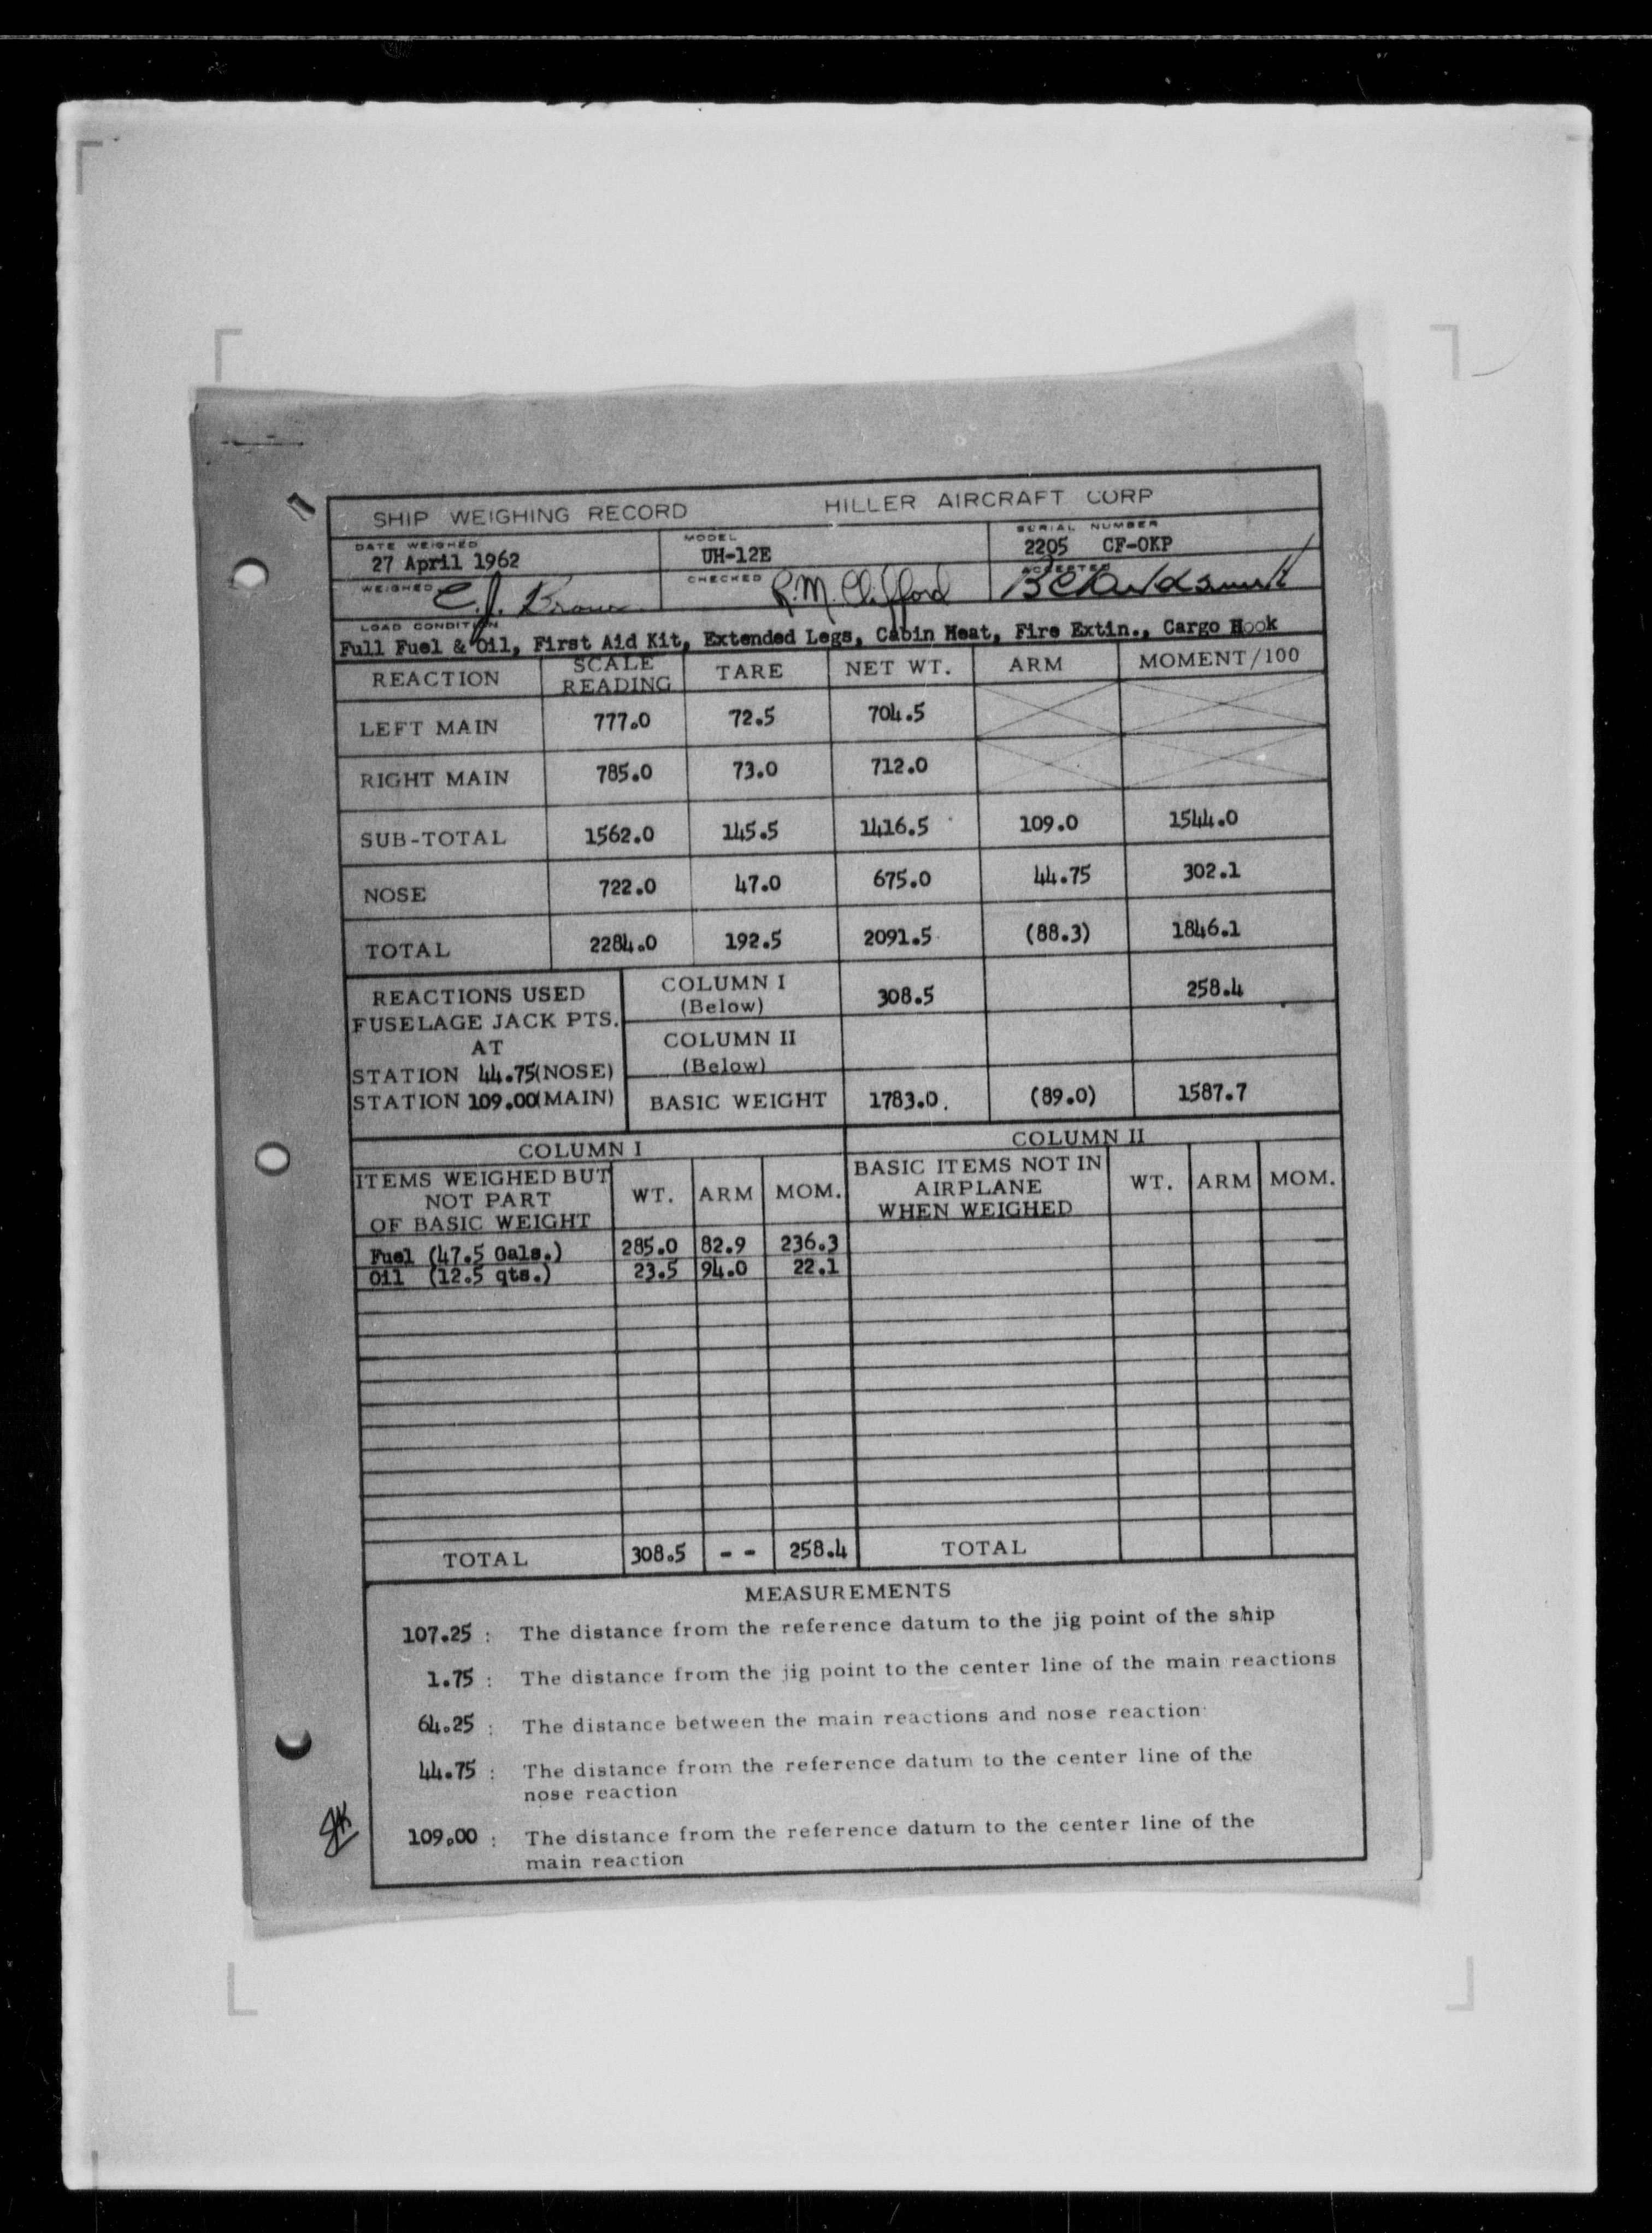 SHIP WEIGHING RECORD HILLER AIRCRAFT CORP
DATE WEIGHED MODEL SERIAL NUMBER
27 April 1962 UH-12E 2205 CF-OKP
WEIGHED C.J. CHECKED R.M. Clifford ACCEPTED
LOAD CONDITION
Full Fuel & Oil, First Aid Kit, Extended Legs, Cabin Heat, Fire Extin., Cargo Hook
REACTION SCALE READING TARE NET WT. ARM MOMENT/100
LEFT MAIN 777.0 72.5 704.5
RIGHT MAIN 785.0 73.0 712.0
SUB-TOTAL 1562.0 145.5 1416.5 109.0 1544.0
NOSE 722.0 47.0 675.0 44.75 302.1
TOTAL 2284.0 192.5 2091.5 (88.3) 1846.1
REACTIONS USED
FUSELAGE JACK PTS.
AT
STATION 44.75(NOSE)
STATION 109.00(MAIN)
COLUMN I
(Below) 308.5 258.4
COLUMN II
(Below)
BASIC WEIGHT 1783.0. (89.0) 1587.7
COLUMN I COLUMN II
ITEMS WEIGHED BUT
NOT PART
OF BASIC WEIGHT
WT. ARM MOM.
BASIC ITEMS NOT IN
AIRPLANE
WHEN WEIGHED
WT. ARM MOM.
Fuel (47.5 Gals.) 285.0 82.9 236.3
Oil (12.5 qts.) 23.5 94.0 22.1
TOTAL 308.5 - - 258.4 TOTAL
MEASUREMENTS
107.25 : The distance from the reference datum to the jig point of the ship
1.75 : The distance from the jig point to the center line of the main reactions
64.25 : The distance between the main reactions and nose reaction
44.75 : The distance from the reference datum to the center line of the
nose reaction
109.00 : The distance from the reference datum to the center line of the
main reaction